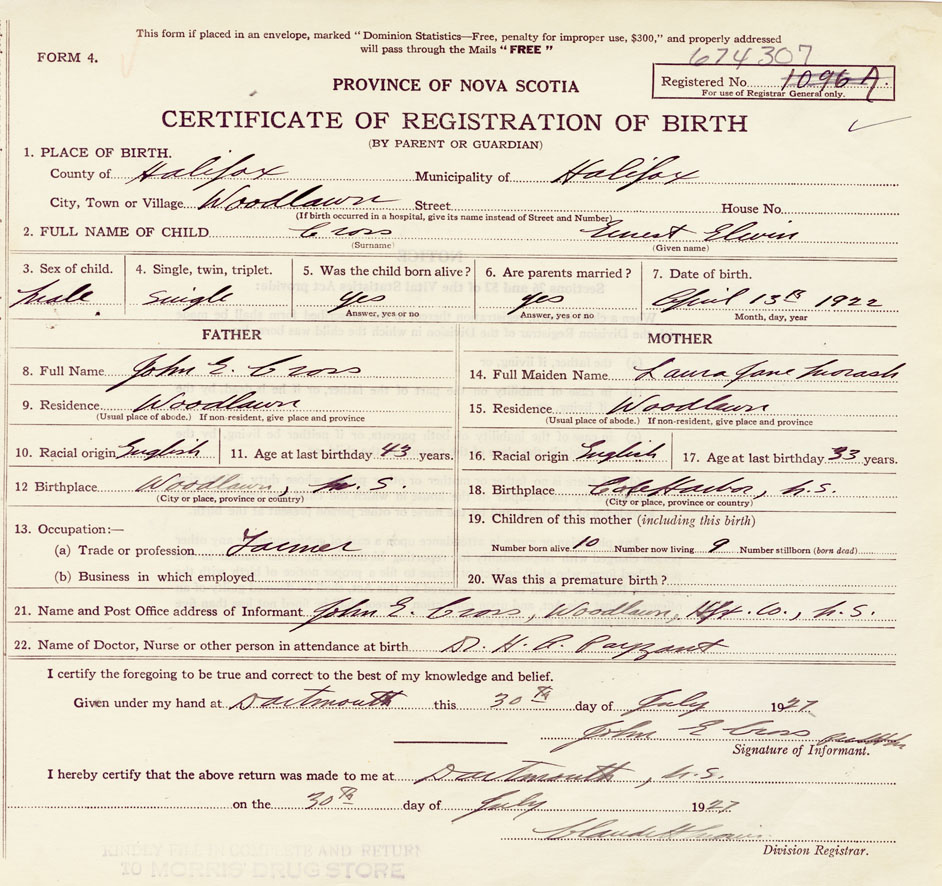 This form if placed in an envelope, marked "Dominion Statistics—Free, penalty for improper use, $300," and properly addressed
will pass through the Mails "FREE"
FORM 4.
674307
PROVINCE OF NOVA SCOTIA
Registered No. 1096 A
For use of Registrar General only.
CERTIFICATE OF REGISTRATION OF BIRTH
(BY PARENT OR GUARDIAN)
1. PLACE OF BIRTH.
County of Halifax Municipality of Halifax
City, Town or Village Woodlawn Street House No.
(If birth occurred in a hospital, give its name instead of Street and Number)
2. FULL NAME OF CHILD Cross Ernest Elwin
(Surname) (Given name)
3. Sex of child. 4. Single, twin, triplet. 5. Was the child born alive? 6. Are parents married? 7. Date of birth.
Male Single yes yes April 13th 1922
Answer, yes or no Answer, yes or no Month, day, year
FATHER MOTHER
8. Full Name John E. Cross 14. Full Maiden Name Laura Jane Morash
9. Residence Woodlawn 15. Residence Woodlawn
(Usual place of abode.) If non-resident, give place and province (Usual place of abode.) If non-resident, give place and province
10. Racial origin English 11. Age at last birthday 43 years. 16. Racial origin English 17. Age at last birthday 33 years.
12 Birthplace Woodlawn, N.S. 18. Birthplace Cole Harbor, N.S.
(City or place, province or country) (City or place, province or country)
13. Occupation:— 19. Children of this mother (including this birth)
(a) Trade or profession Farmer Number born alive 10 Number now living 9 Number stillborn (born dead)
(b) Business in which employed 20. Was this a premature birth?
21. Name and Post Office address of Informant John E. Cross, Woodlawn, Hfx. Co., N.S.
22. Name of Doctor, Nurse or other person in attendance at birth Dr. H. A. Payzant
I certify the foregoing to be true and correct to the best of my knowledge and belief.
Given under my hand at Dartmouth this 30th day of July 1927
John E Cross
Signature of Informant.
I hereby certify that the above return was made to me at Dartmouth, N.S.
on the 30th day of July 1927
Division Registrar.
KINDLY FILL IN COMPLETE AND RETURN
TO MORRIS' DRUG STORE